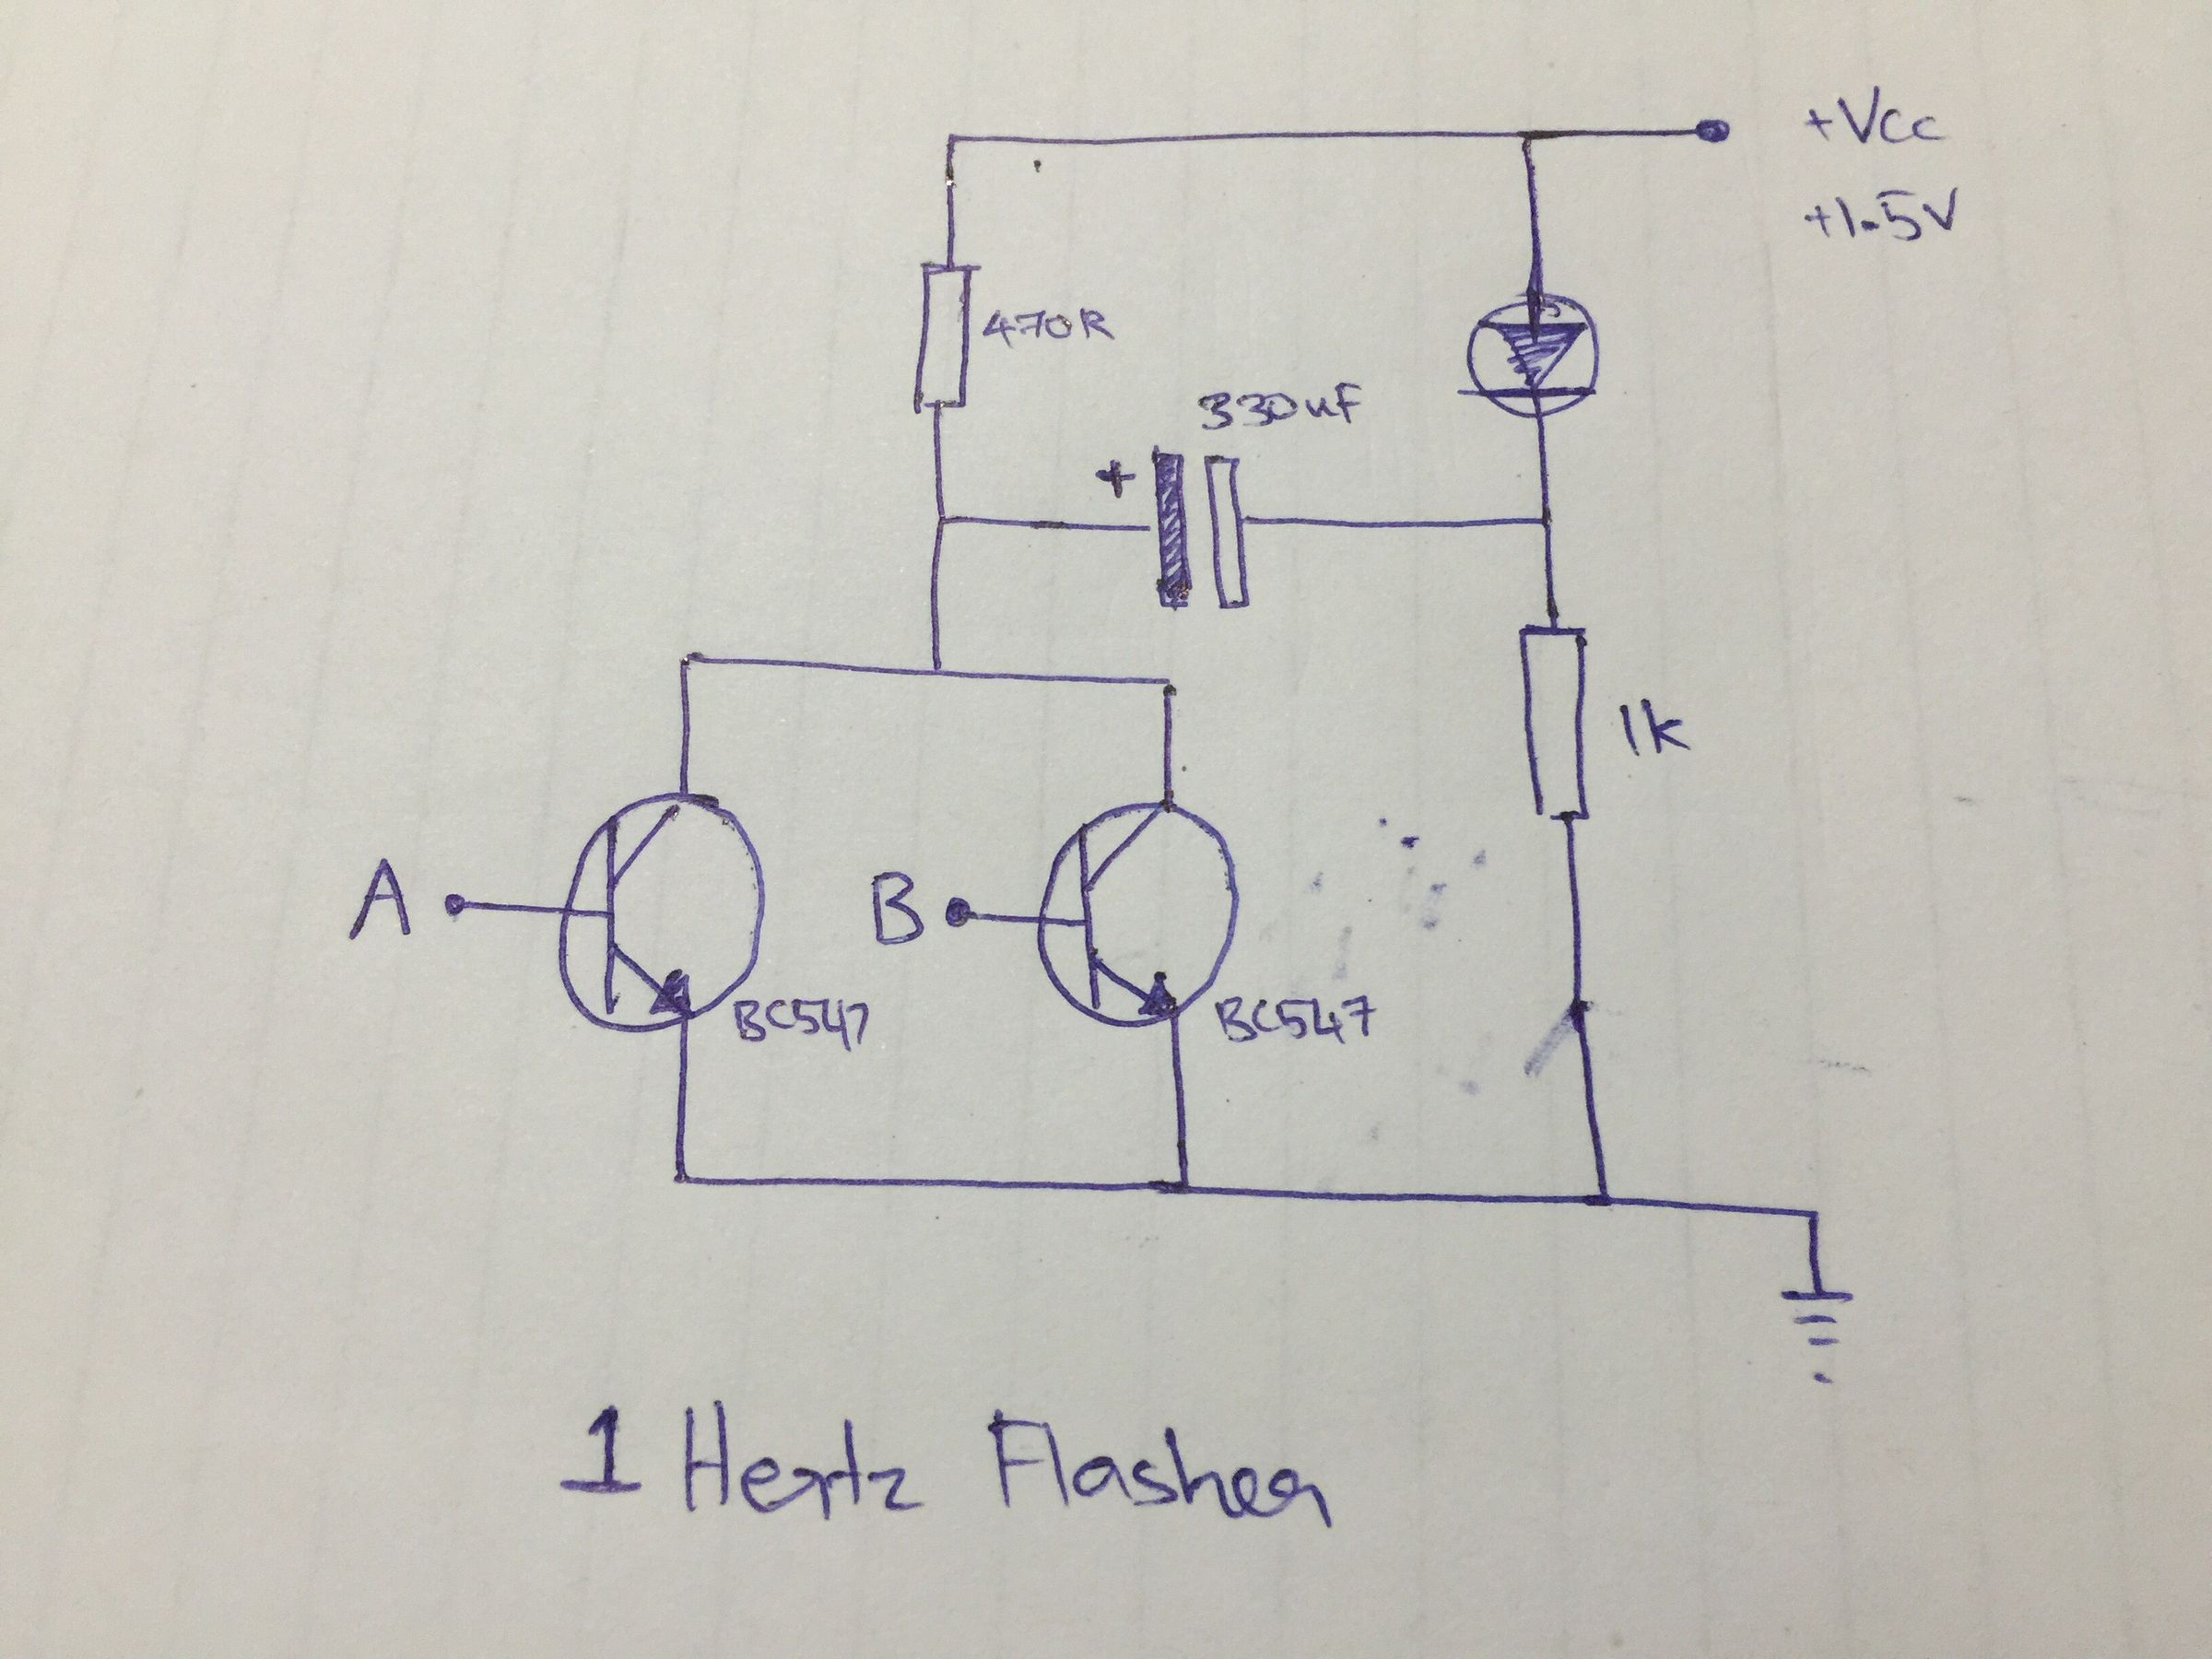 +Vcc
+1.5V
470R
330uF
+
1k
A
B
BC547
BC547
1 Hertz Flasher